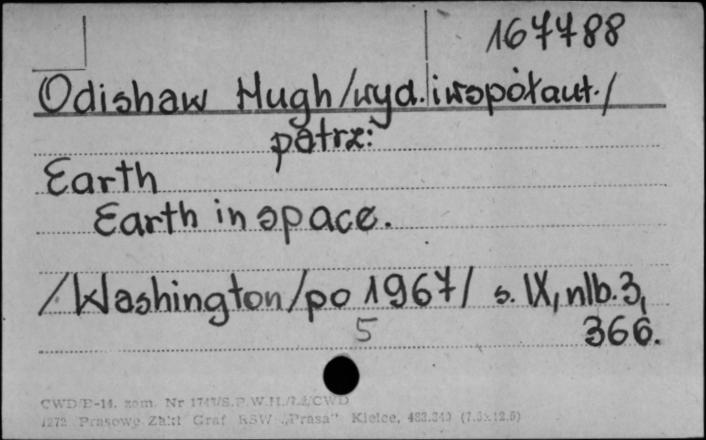 167788
Odishaw Hugh/wyd. i współaut./
patrz:
Earth
Earth in space.
/Washington/po 1967/ s. IX, nlb. 3,
5 366.
CWD/E-14. zam. Nr
1272 Prasowe Zakł Graf RSW "Prasa" Kielce,